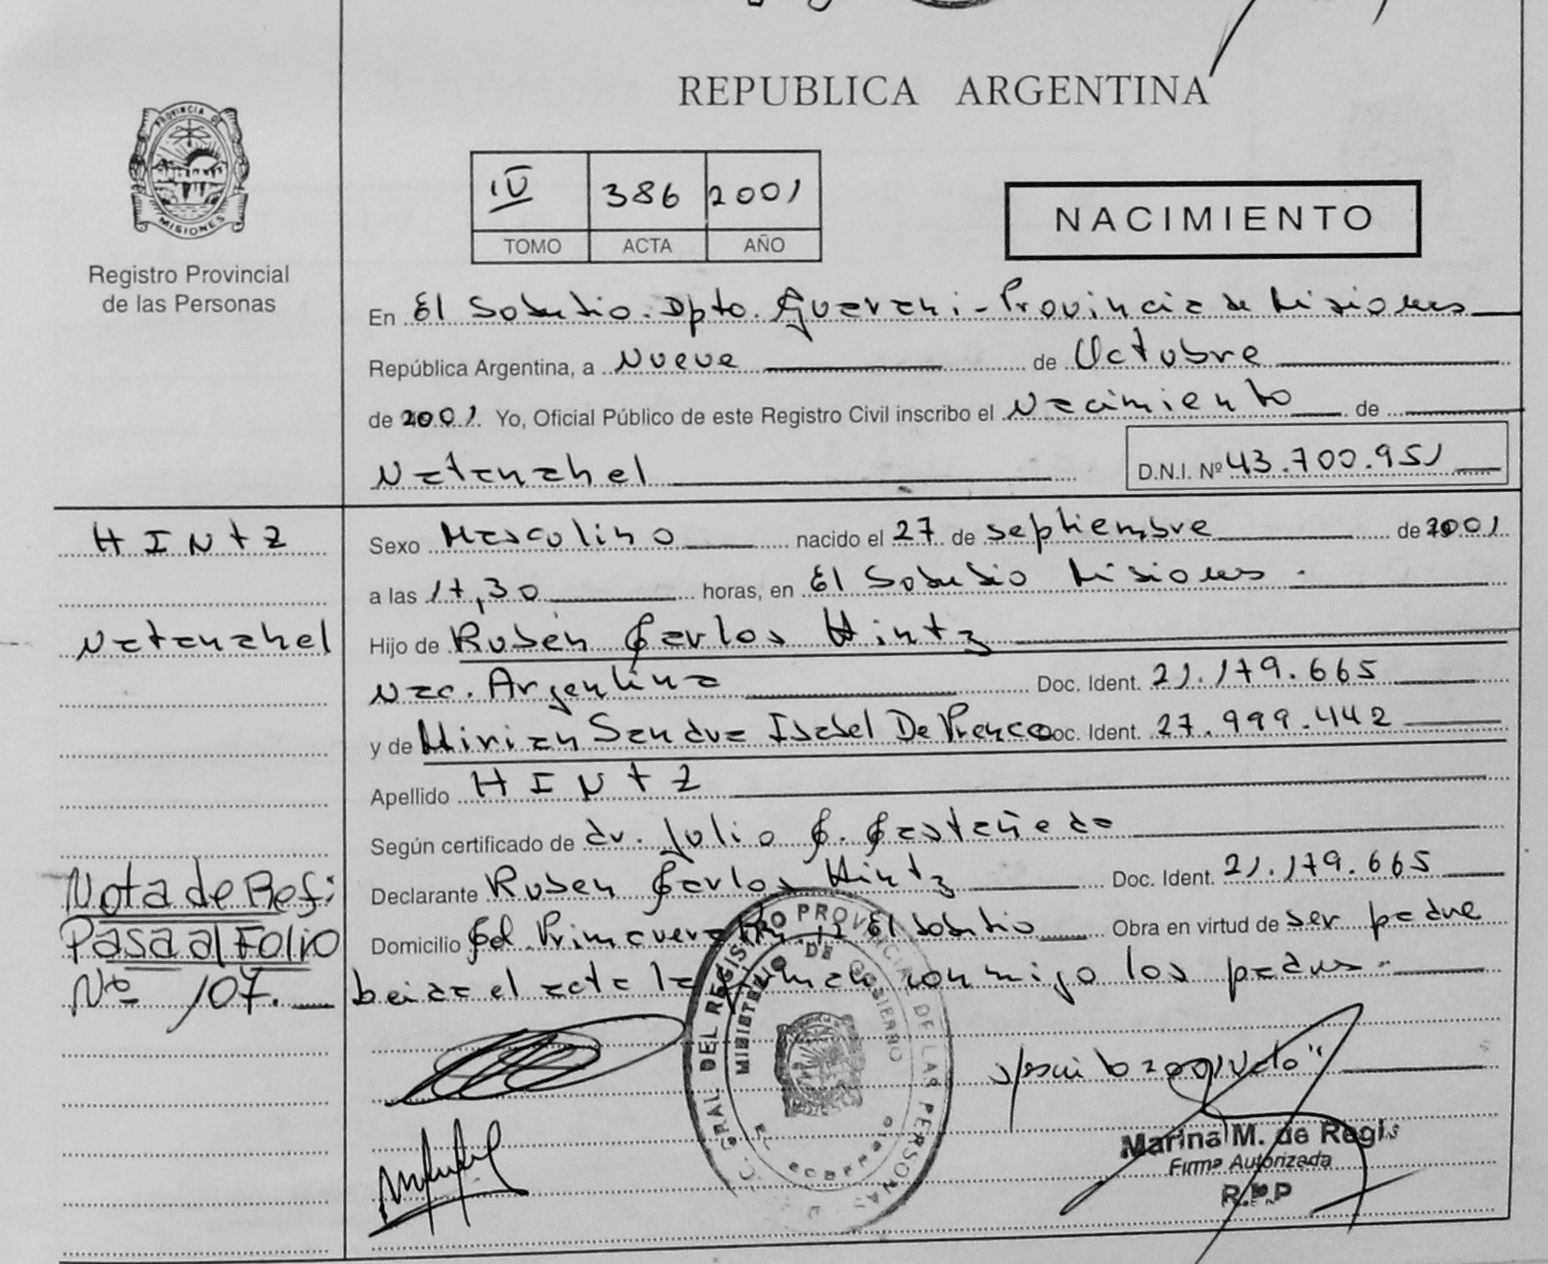 REPUBLICA ARGENTINA
PROVINCIA DE
MISIONES
Registro Provincial
de las Personas
IV 386 2001
TOMO ACTA AÑO
NACIMIENTO
En El Soberbio. Dpto. Guarani - Provincia de Misiones
República Argentina, a Nueve de Octubre
de 2001 Yo, Oficial Público de este Registro Civil inscribo el Nacimiento de
Natanahel D.N.I. Nº 43.700.951
HINtZ
Sexo Masculino nacido el 27 de septiembre de 2001
a las 17,30 horas, en El Soberbio Misiones.
Natanahel
Hijo de Ruben Carlos Hintz
Nac. Argentina Doc. Ident. 21.179.665
y de Mirian Sandra Isabel De Franco Doc. Ident. 27.999.442
Apellido HINtZ
Según certificado de dr. Julio C. Castañeda
Declarante Ruben Carlos Hintz Doc. Ident. 21.179.665
Domicilio Primavera El Soberbio Obra en virtud de ser padre
Nota de Ref:
Pasa al Folio
Nº 107.
leida el acta la firman conmigo los padres.
GRAL. DEL REGISTRO PROVINCIAL DE LAS PERSONAS
MINISTERIO DE GOBIERNO
EL SOBERBIO
Marina M. de Regis
Firma Autorizada
R.P.P